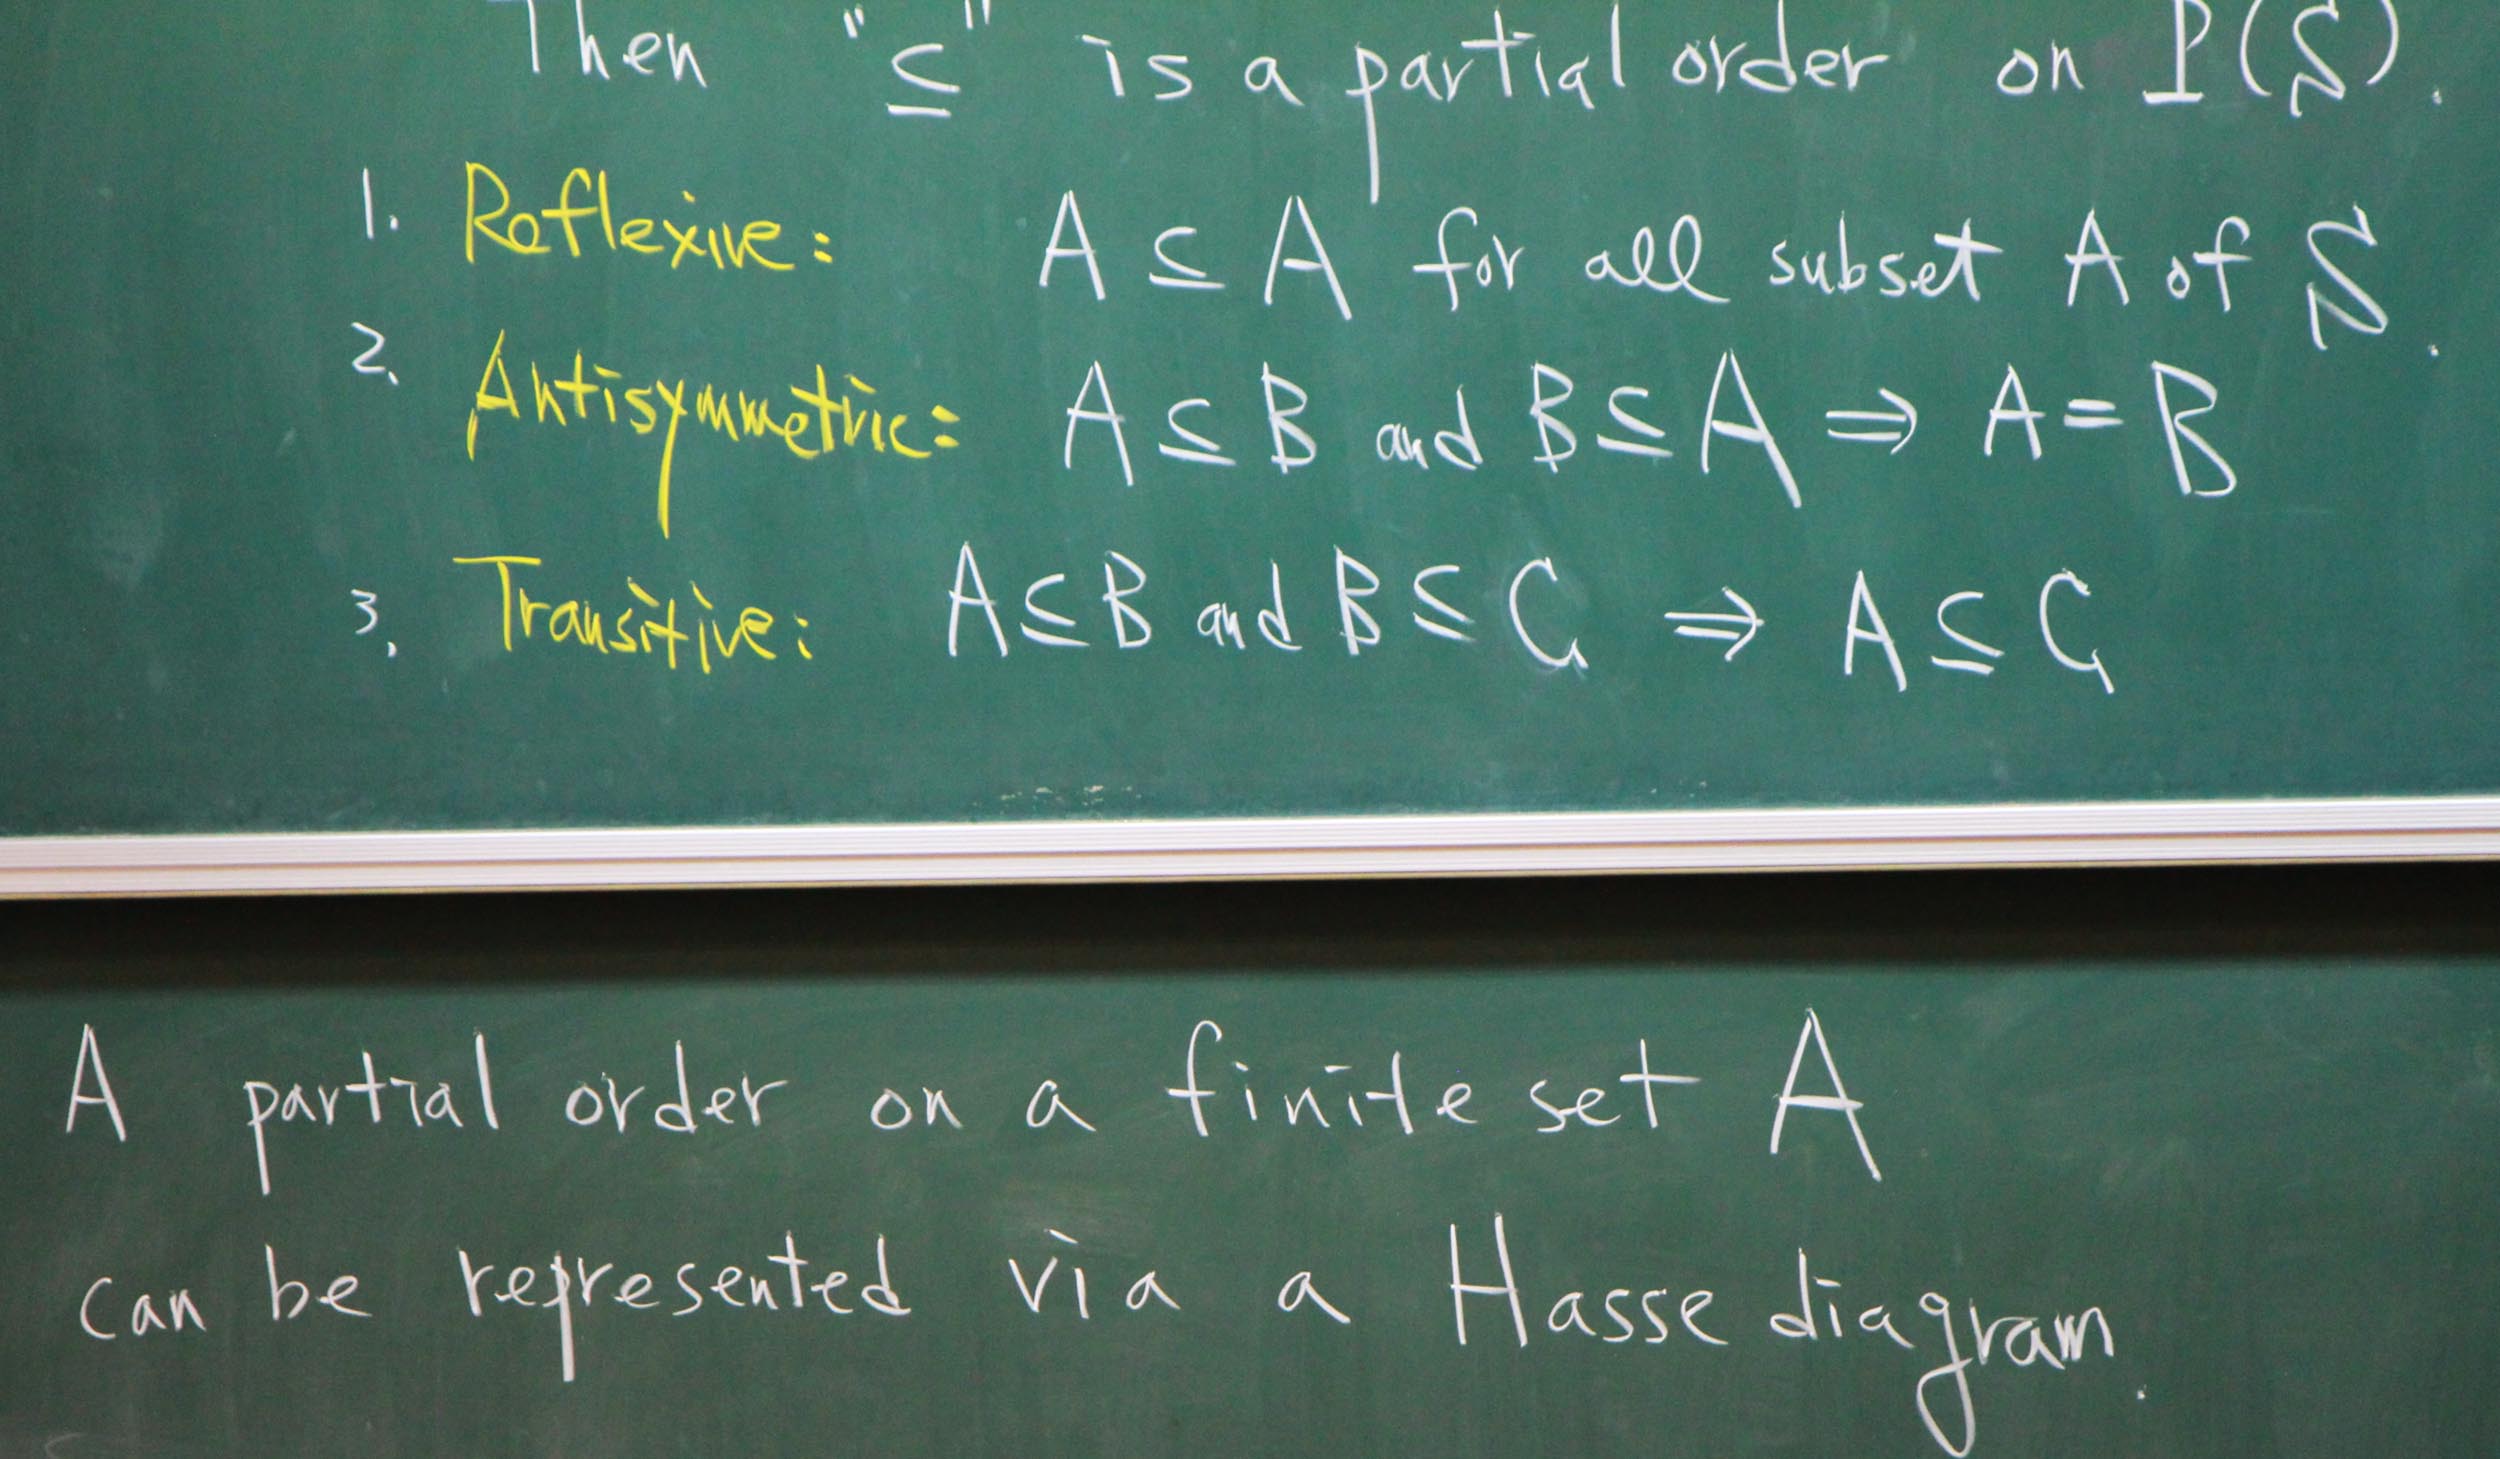 Then "⊆" is a partial order on P(S).
1. Reflexive: A ⊆ A for all subset A of S.
2. Antisymmetric: A ⊆ B and B ⊆ A ⇒ A = B
3. Transitive: A ⊆ B and B ⊆ C ⇒ A ⊆ C
A partial order on a finite set A
can be represented via a Hasse diagram.